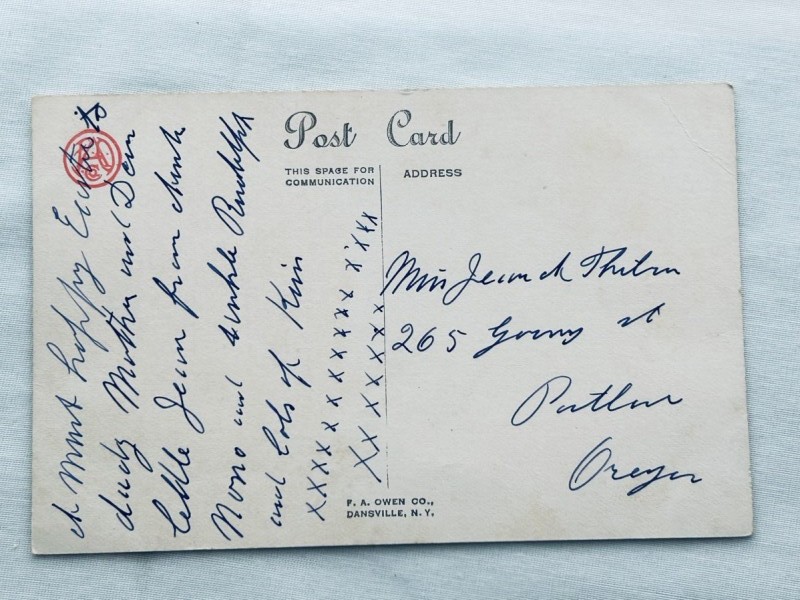 Post Card
THIS SPACE FOR
COMMUNICATION
ADDRESS
A Most happy Easter to
dady Mother and Dear
little Jean from Aunt
Nono and Unkle Rudolph
and lots of Kiss
XXXXXXXXXXXXXX
XXXXXXXX
Miss Jean
265 st
Portland
Oregon
F. A. OWEN CO.,
DANSVILLE, N. Y.